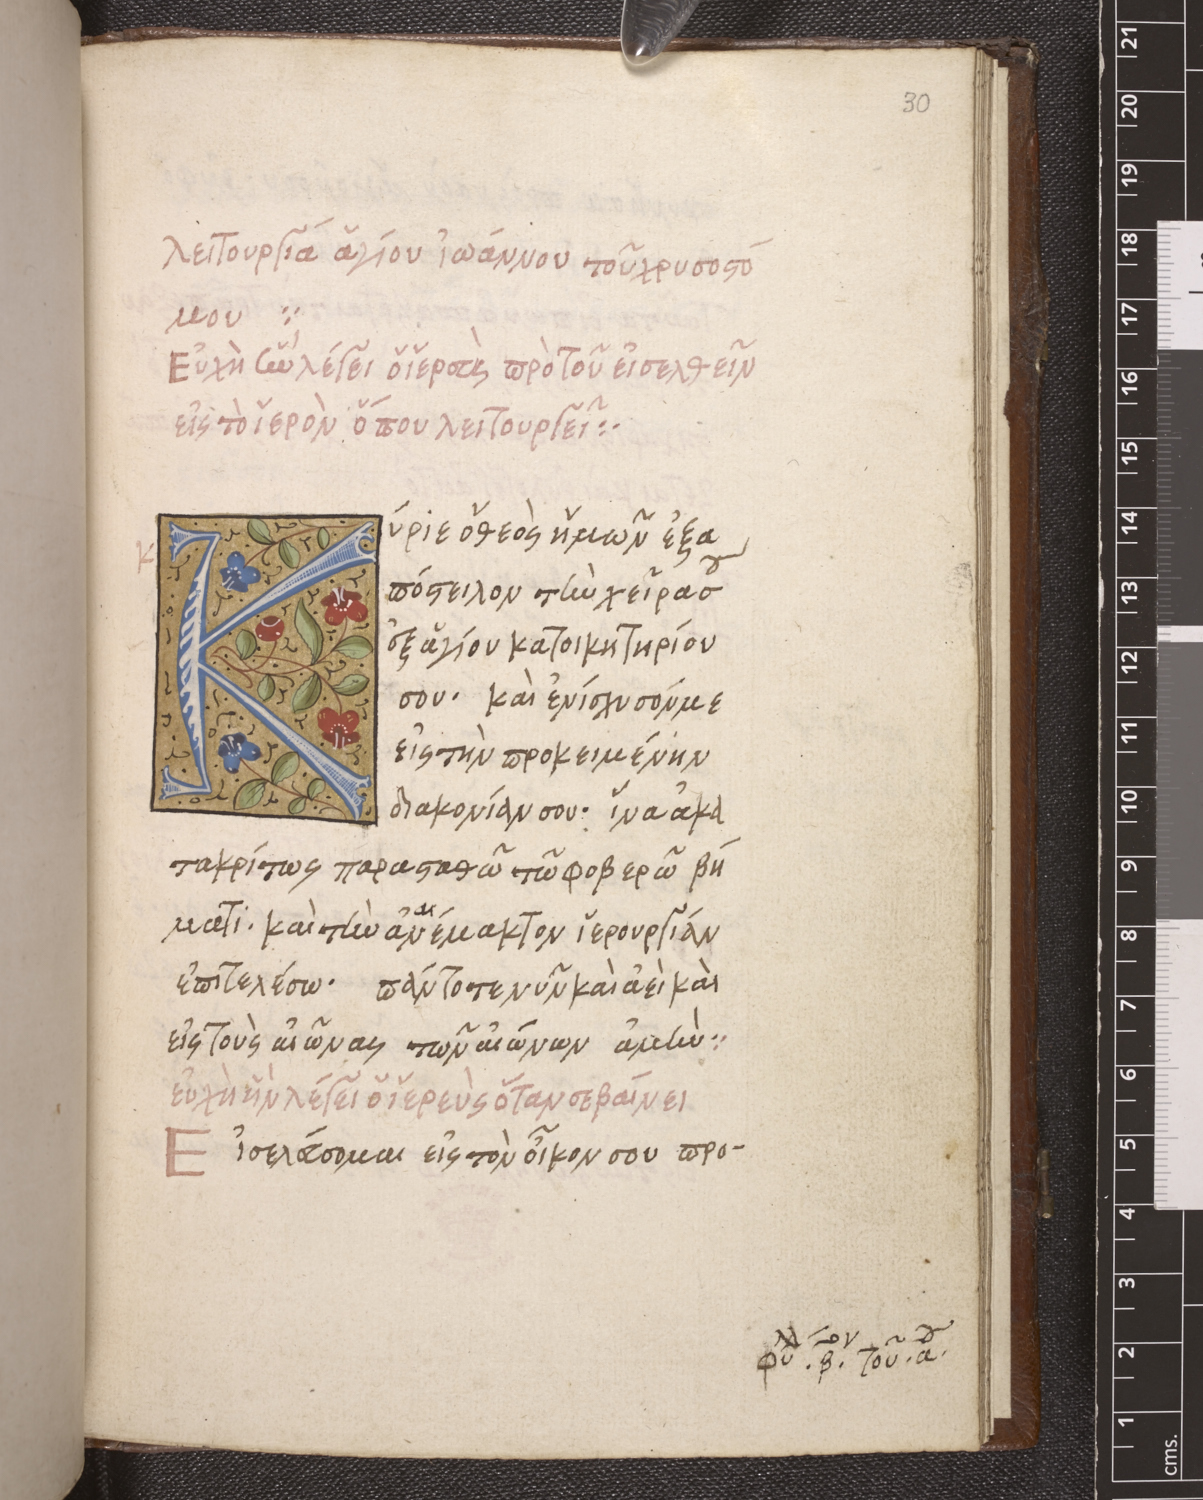 30
λειτουργία ἁγίου ἰωάννου τοῦ χρυσοστό
μου :·
Εὐχὴ ἣν λέγει ὁ ἱερεὺς πρὸ τοῦ εἰσελθεῖν
εἰς τὸ ἱερὸν ὅπου λειτουργεῖ :·
κ
Κύριε ὁ θεὸς ἡμῶν ἐξα
πόστειλον τὴν χεῖρα σου
ἐξ ἁγίου κατοικητηρίου
σου· καὶ ἐνίσχυσόν με
εἰς τὴν προκειμένην
διακονίαν σου· ἵνα ἀκα
τακρίτως παρασταθῶ τῷ φοβερῷ βή
ματι· καὶ τὴν ἀναίμακτον ἱερουργίαν
ἐπιτελέσω· πάντοτε νῦν καὶ ἀεὶ καὶ
εἰς τοὺς αἰῶνας τῶν αἰώνων ἀμήν :·
εὐχὴ ἣν λέγει ὁ ἱερεὺς ὅταν σεβαίνει
Εἰσελεύσομαι εἰς τὸν οἶκον σου προ-
φύλλον .β. τοῦ .α.